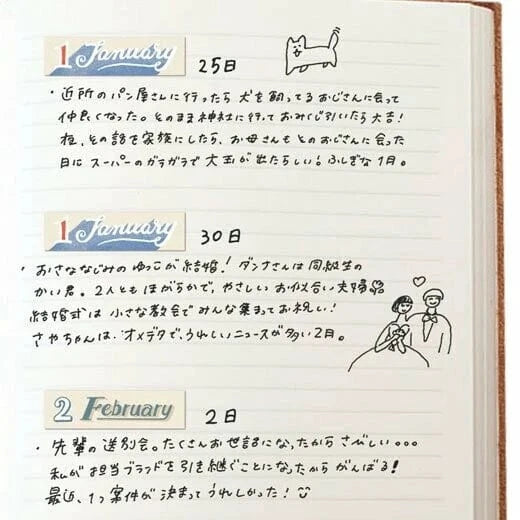 1 January 25日
・近所のパン屋さんに行ったら犬を飼ってるおじさんに会って
仲良くなった。そのまま神社に行っておみくじ引いたら大吉!
夜、その話を家族にしたら、お母さんもとのおじさんに会った
日にスーパーのガラガラで大玉が出たらしい!ふしぎな1月。
1 January 30日
・おさななじみのゆっこが結婚!ダンナさんは同級生の
かい君。2人ともほがらかで、やさしいお似合い夫婦
結婚式は小さな教会でみんな集まってお祝い!
さやちゃんは、オメデタで、うれしいニュースが多い2月。
2 February 2日
・先輩の送別会。たくさんお世話になったからさびしい...
私がお担当ブランドを引き継ぐことになったからがんばる!
最近、1つ案件が決まってうれしかった!